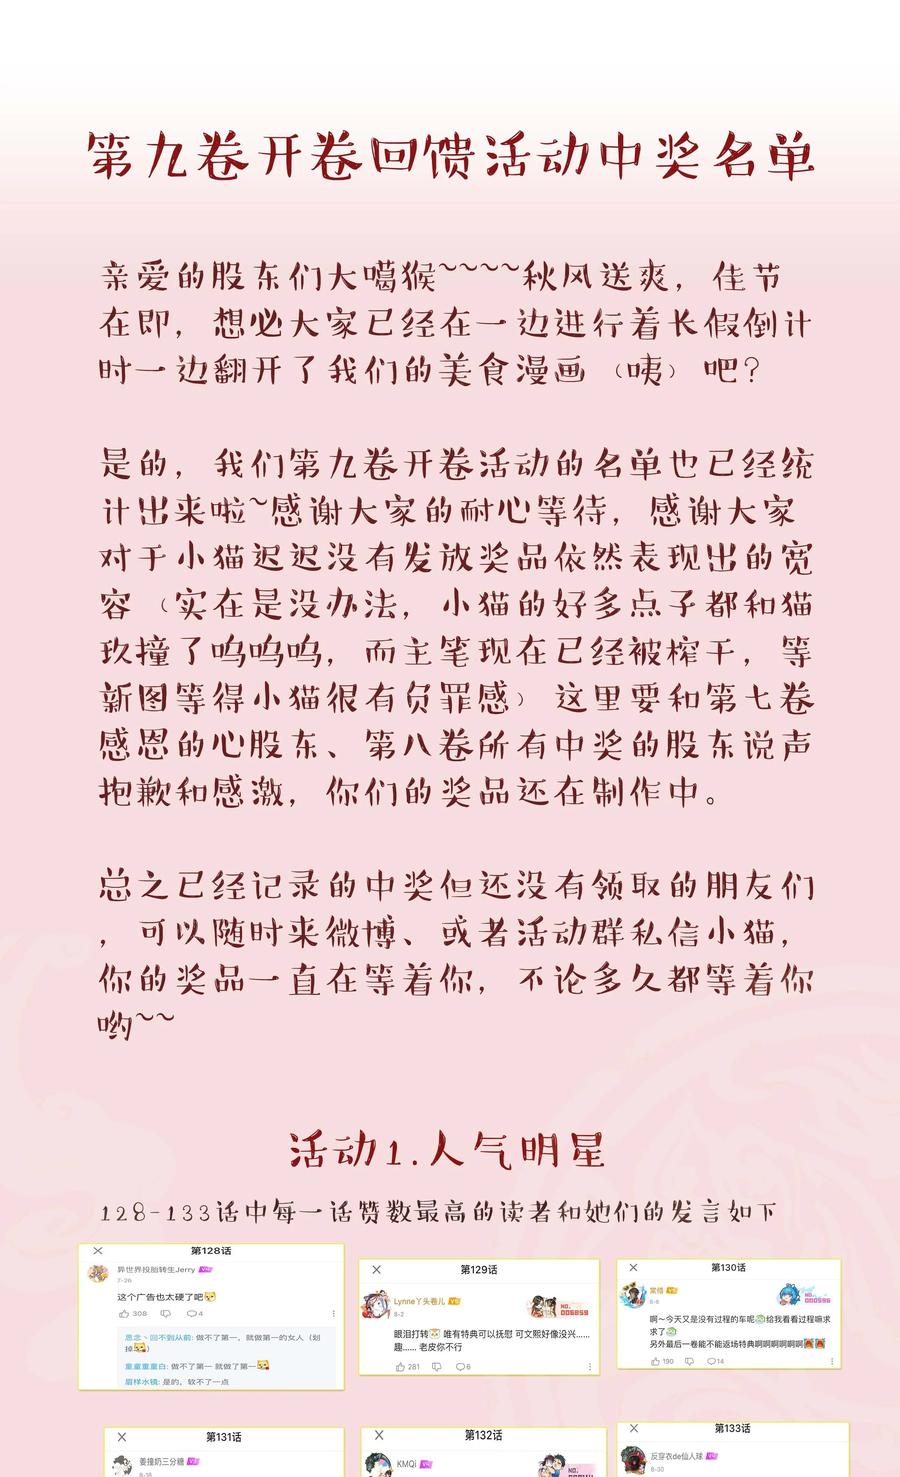 第九卷开卷回馈活动中奖名单
亲爱的股东们大噶猴~~~~秋风送爽，佳节
在即，想必大家已经在一边进行着长假倒计
时一边翻开了我们的美食漫画（咦）吧？
是的，我们第九卷开卷活动的名单也已经统
计出来啦~感谢大家的耐心等待，感谢大家
对于小猫迟迟没有发放奖品依然表现出的宽
容（实在是没办法，小猫的好多点子都和猫
玖撞了呜呜呜，而主笔现在已经被榨干，等
新图等得小猫很有负罪感）这里要和第七卷
感恩的心股东、第八卷所有中奖的股东说声
抱歉和感激，你们的奖品还在制作中。
总之已经记录的中奖但还没有领取的朋友们
，可以随时来微博、或者活动群私信小猫，
你的奖品一直在等着你，不论多久都等着你
哟~~
活动1.人气明星
128-133话中每一话赞数最高的读者和她们的发言如下
第128话
异世界投胎转生Jerry
7-26
这个广告也太硬了吧
308
4
恩念丶回不到从前: 做不了第一，就做第一的女人（划
掉）
童童童童白: 做不了第一 就做了第一
眉样水镜: 是的，软不了一点
第129话
Lynne丫头卷儿
8-2
NO.
006859
眼泪打转 唯有特典可以抚慰 可文熙好像没兴……
趣…… 老皮你不行
281
6
第130话
棠楿
8-8
NO.
000596
啊～今天又是没有过程的车呢 给我看看过程嘛求
求了
另外最后一卷能不能返场特典啊啊啊啊啊啊
190
14
第131话
姜撞奶三分糖
8-16
第132话
KMQi
NO.
第133话
反穿衣de仙人球
8-30